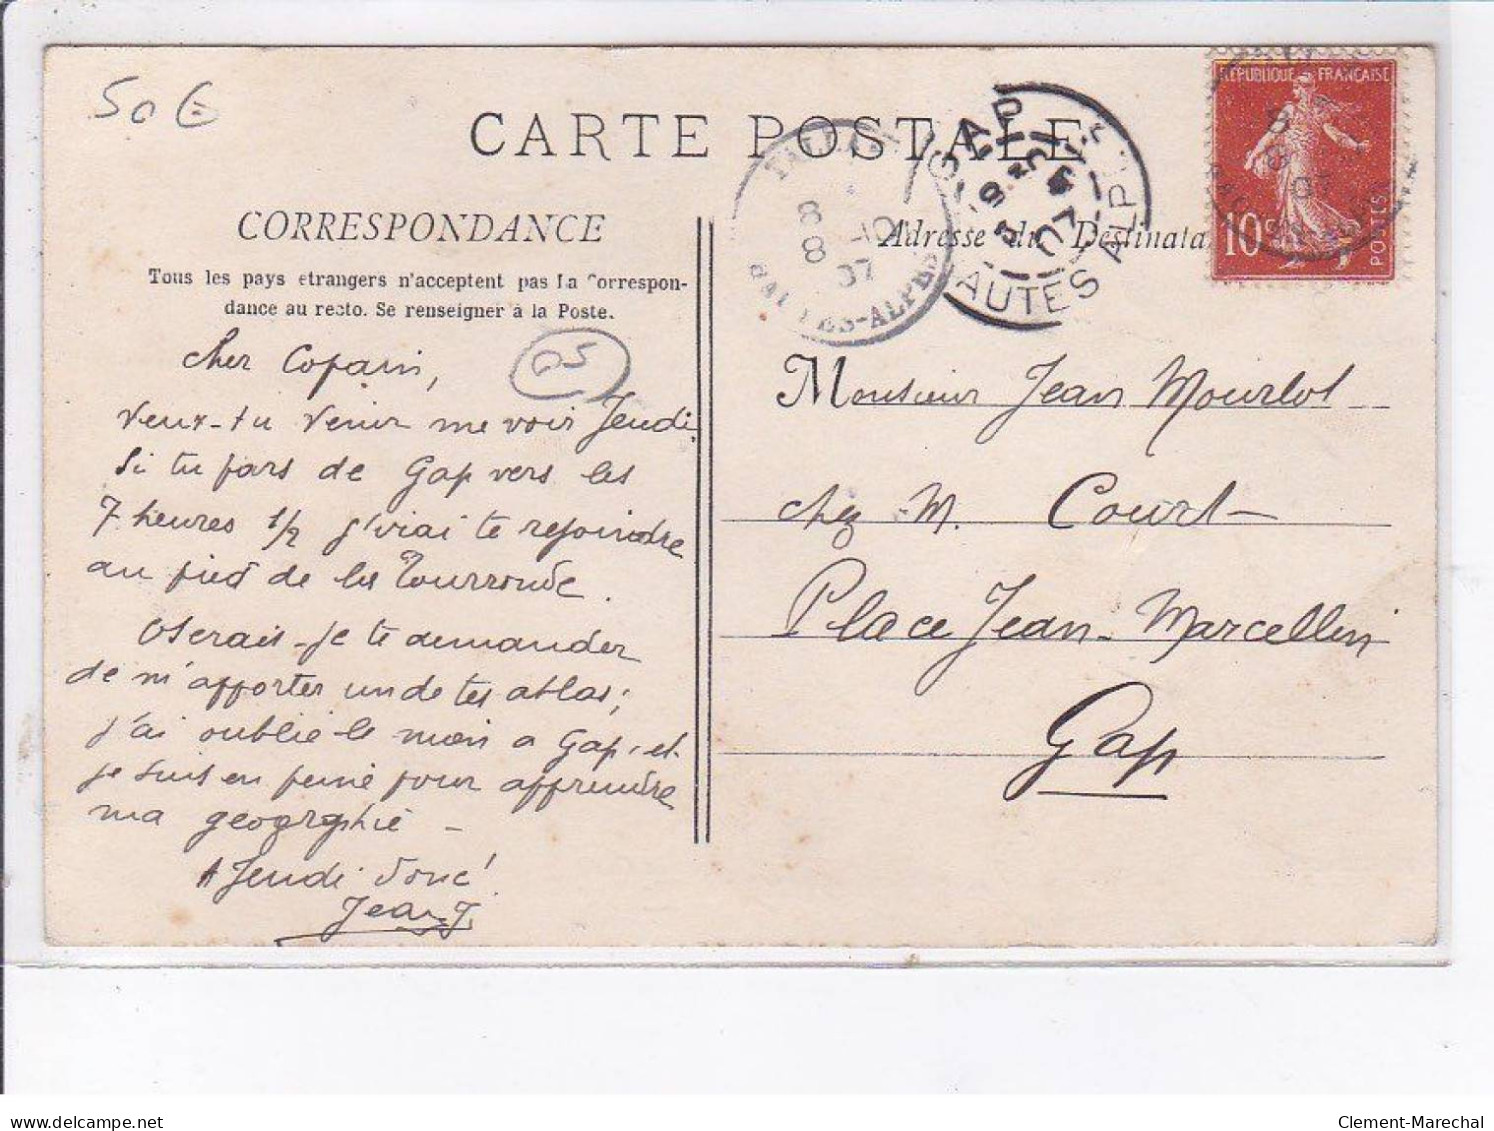 50 €
CARTE POSTALE
CORRESPONDANCE
Tous les pays etrangers n'acceptent pas la Correspon-
dance au recto. Se renseigner à la Poste.
05
Cher Copain,
Veux-tu venir me voir Jeudi.
Si tu pars de Gap vers les
7 heures 1/2 j'irai te rejoindre
au pied de la Tourronde.
Oserais-je te demander
de m'apporter un de tes atlas;
j'ai oublié le mien a Gap, et
je suis en peine pour apprendre
ma geographie -
A Jeudi donc!
Jean J.
8
8
07
HAUTES-ALPES
GAP
HAUTES ALPES
Adresse du Destinata
REPUBLIQUE FRANCAISE
10 c
POSTES
8
8
07
Monsieur Jean Mourlot
chez M. Court
Place Jean-Marcellin
Gap
delcampe.net
Clement-Marechal